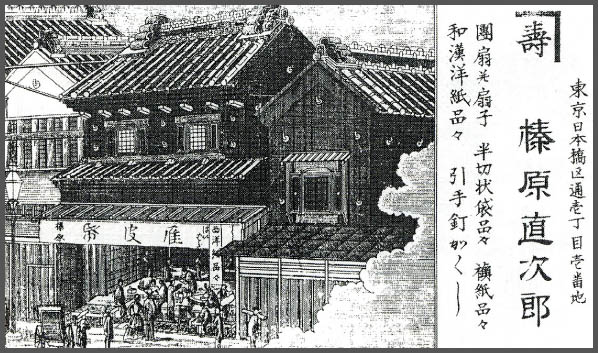 東京日本橋区通壱丁目壱番地
壽 榛原直次郎
團扇并扇子 半切状袋品々 襖紙品々
和漢洋紙品々 引手釘かくし
西洋紙品々
雁皮帋
榛原